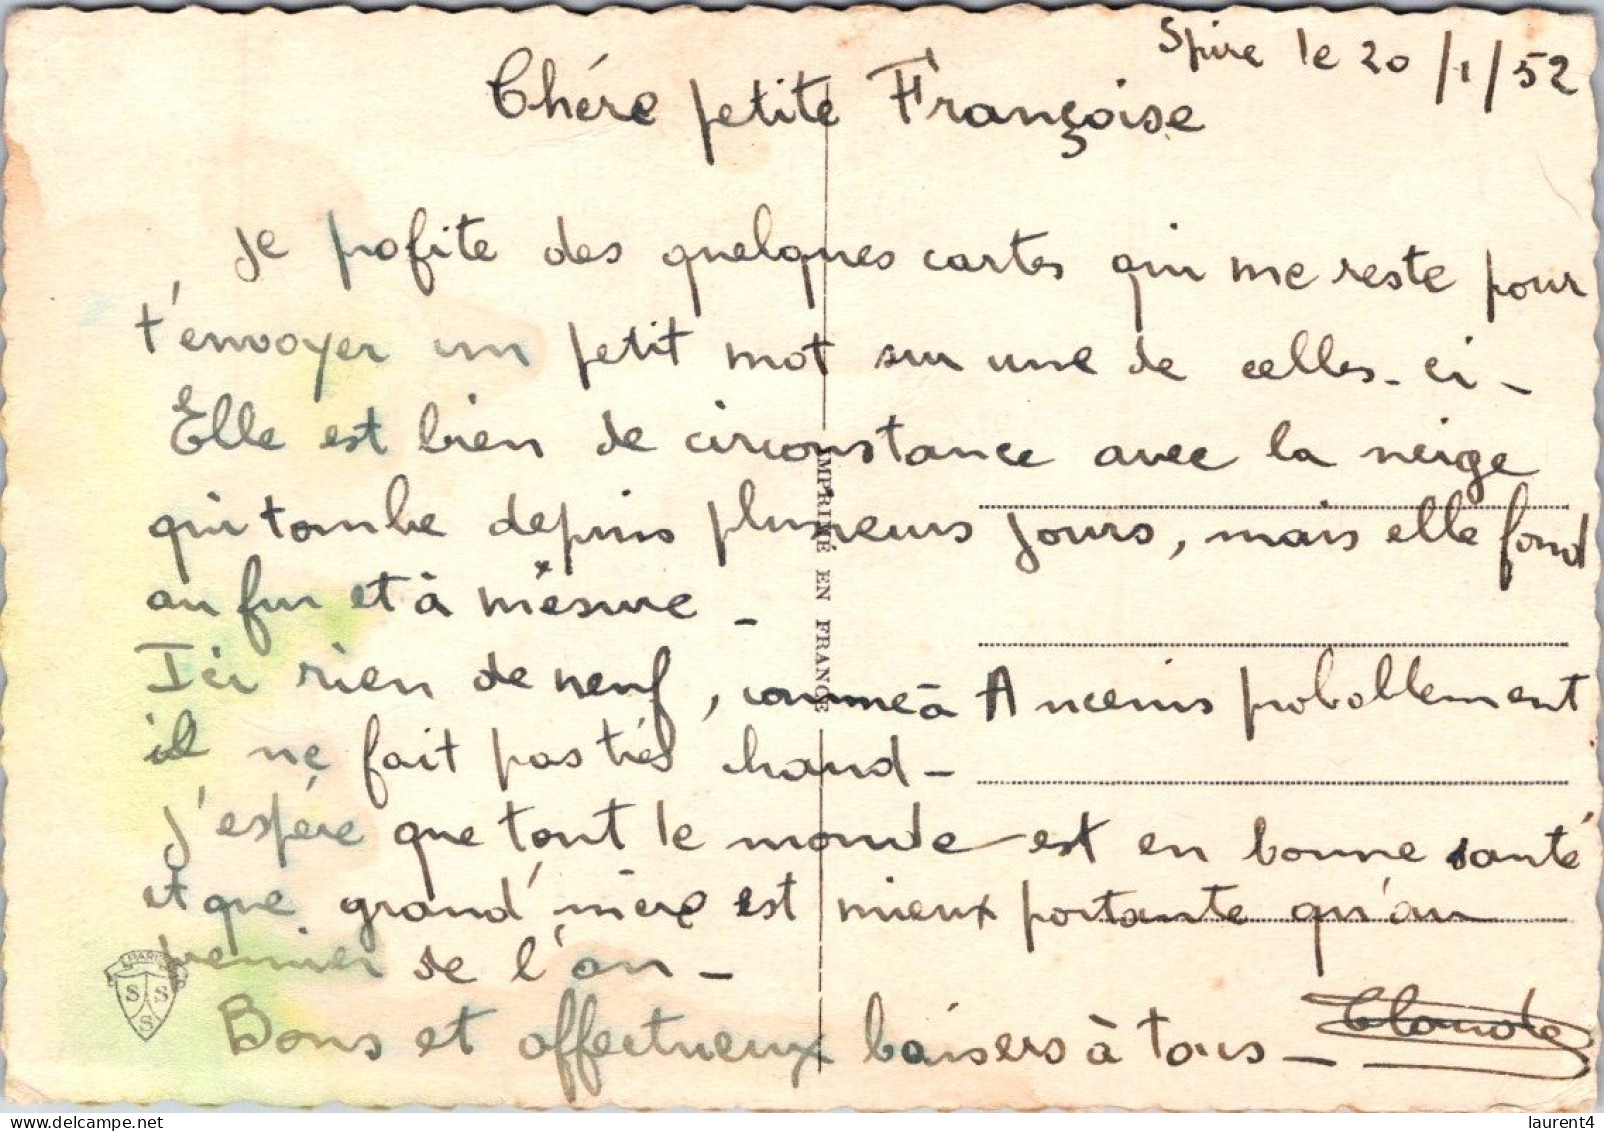 Spire le 20/1/52
Chére petite Françoise
Je profite des quelques cartes qui me reste pour
t'envoyer un petit mot sur une de celles-ci -
Elle est bien de circonstance avec la neige
qui tombe depuis plusieurs jours, mais elle fond
au fur et à mésure -
Ici rien de neuf, comme à Ancenis probablement
il ne fait pas très chaud -
J'espére que tout le monde est en bonne santé
et que grand'mère est mieux portante qu'au
premier de l'an -
Bons et affectueux baisers à tous -
Claude
IMPRIMÉ EN FRANCE
PARIS
S S
S
laurent4
delcampe.net